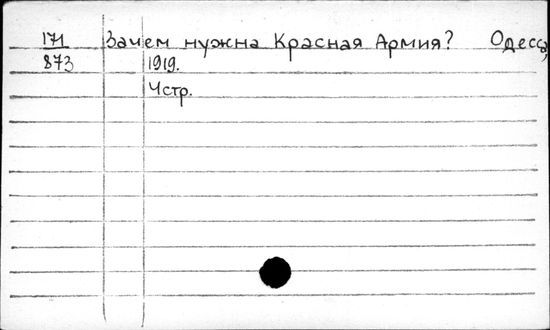 171 Зачем нужна Красная Армия? Одесса,
873 1919.
4стр.